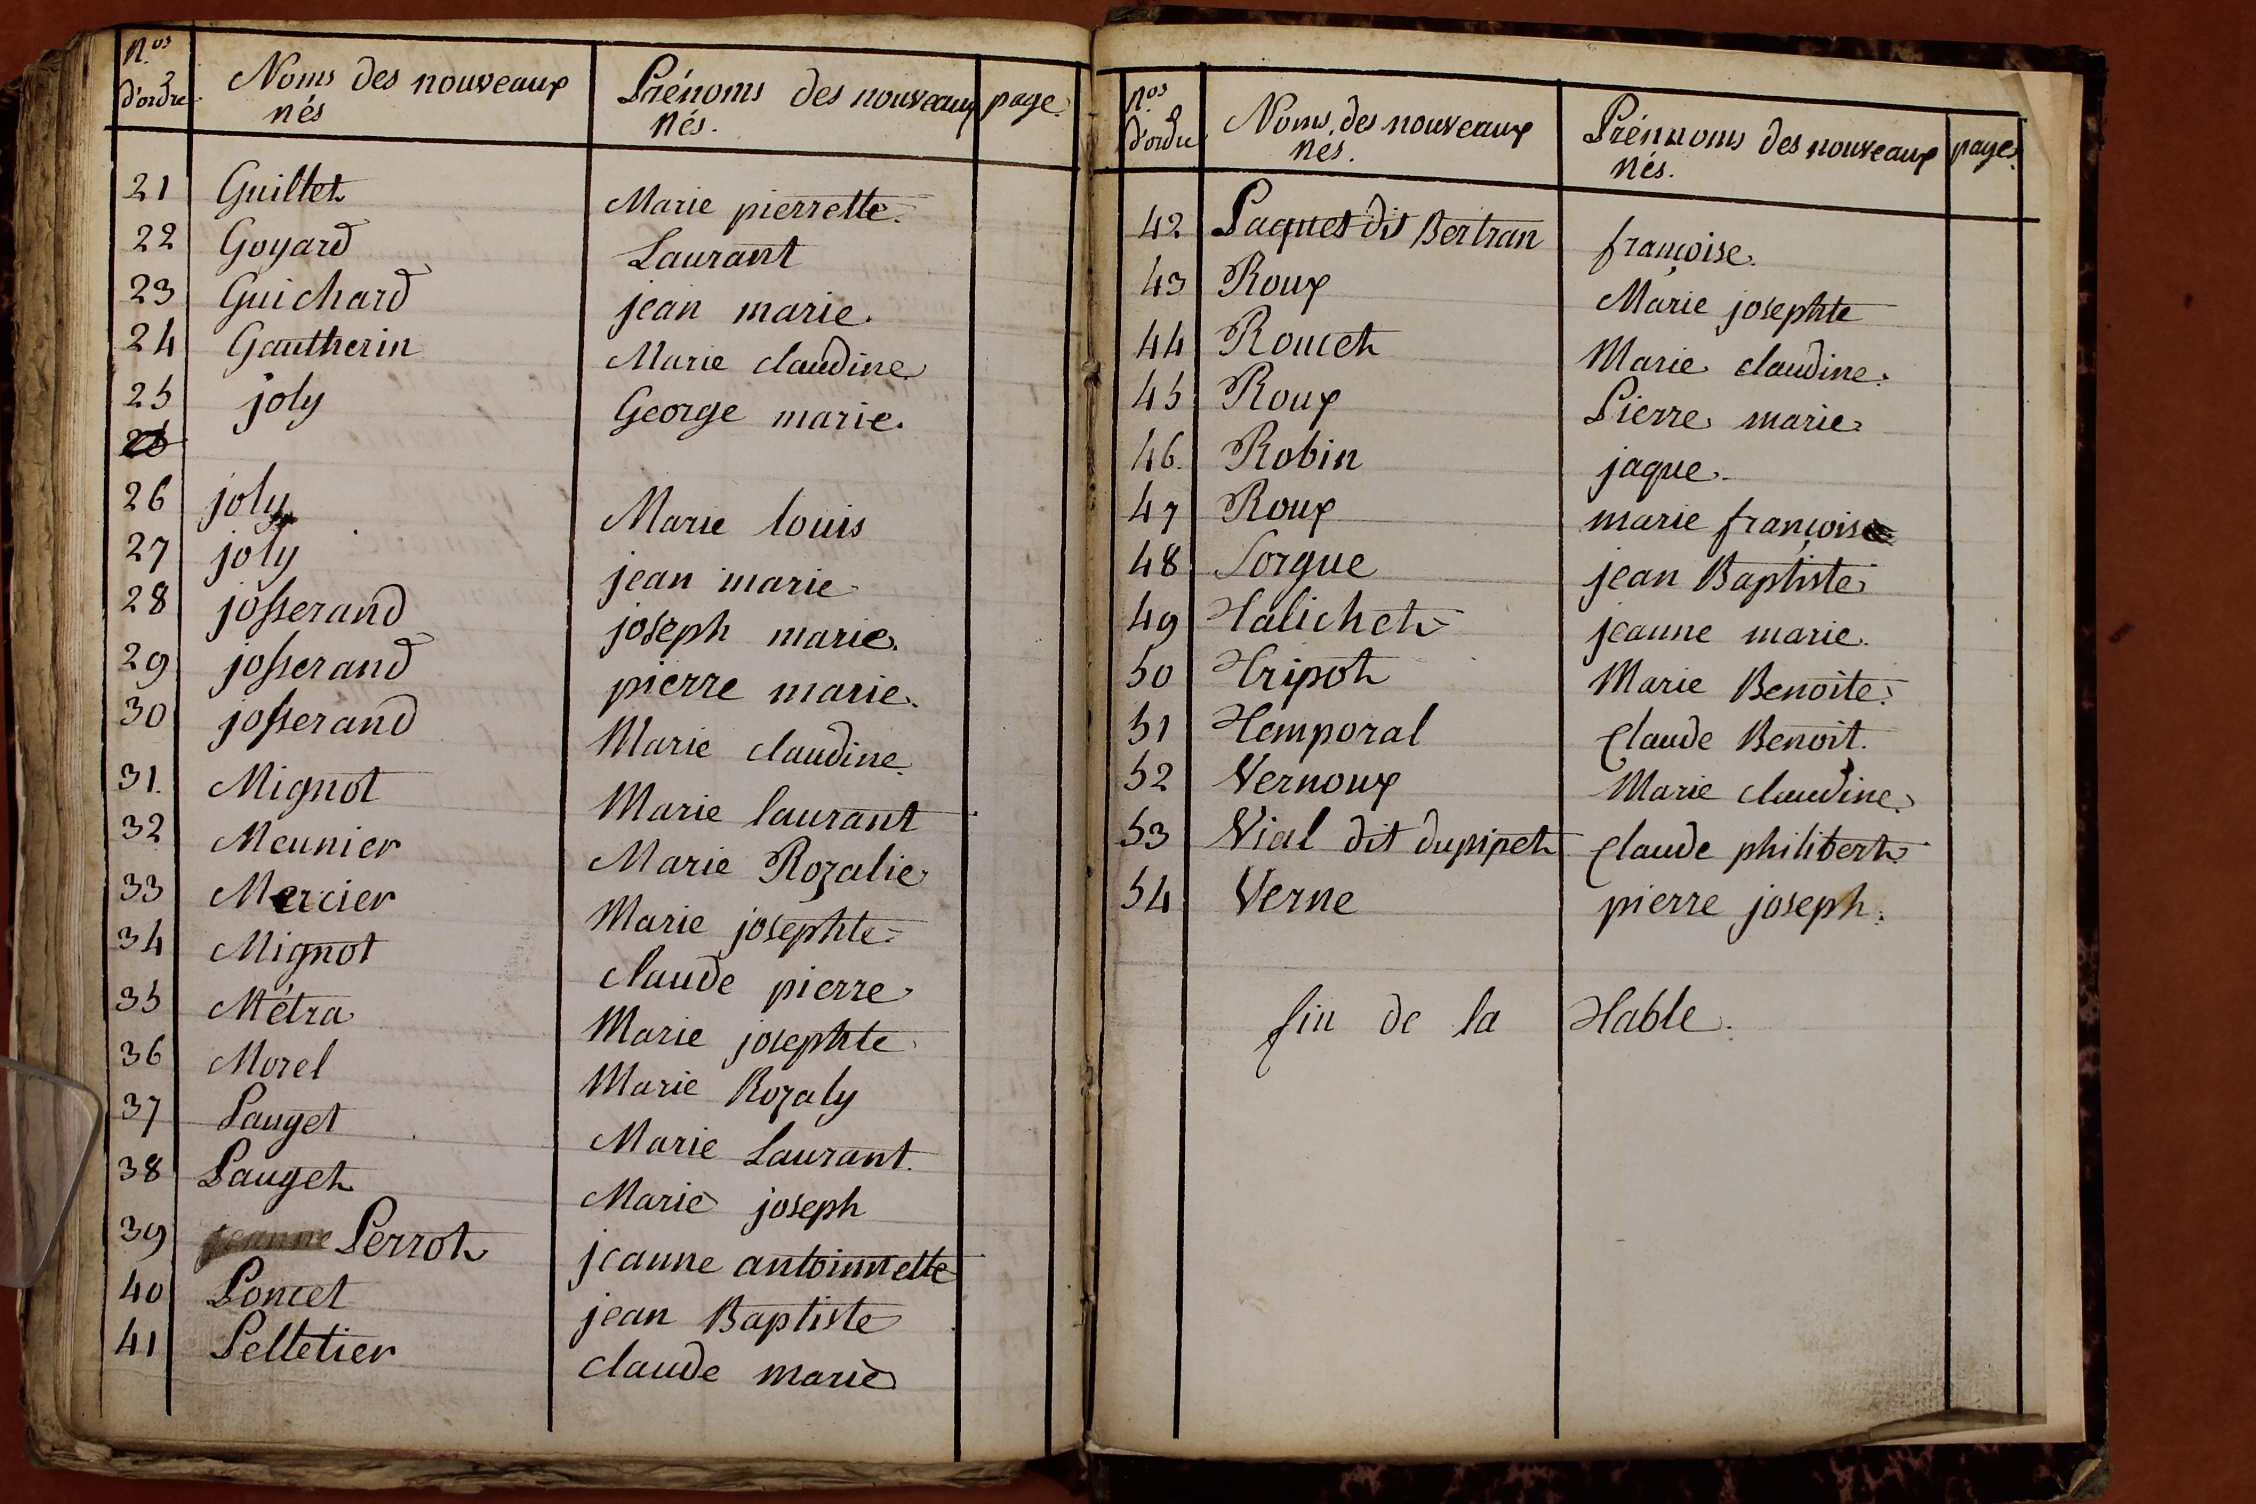 N.os d'ordre Noms des nouveaux nés Prénoms des nouveaux nés. page.
21 Guillet Marie pierrette.
22 Goyard Laurant
23 Guichard jean marie.
24 Gautherin Marie claudine
25 joly George marie.
26 joly Marie louis
27 joly jean marie
28 josserand joseph marie.
29 josserand pierre marie.
30 josserand Marie claudine.
31. Mignot Marie laurant
32 Meunier Marie Rozalie
33 Mercier Marie josephte
34 Mignot claude pierre
35 Métra Marie josephte
36 Morel Marie Rozaly
37 Pauget Marie Laurant.
38 Pauget Marie joseph
39 jeanne Perrot jeanne antoinnette
40 Poncet jean Baptiste
41 Pelletier claude marie
N.os d'ordre Noms des nouveaux nés. Prénnoms des nouveaux nés. pages.
42 Paquet dit Bertran françoise.
43 Roux Marie josephte
44 Roucet Marie claudine.
45 Roux Pierre marie
46. Robin jaque.
47 Roux marie françoise
48 Sorgue jean Baptiste
49 Talichet jeanne marie.
50 Tripot Marie Benoite.
51 Temporal Claude Benoit.
52 Vernoux Marie claudine.
53 Vial dit dupipet Claude philibert.
54 Verne pierre joseph.
fin de la Table.